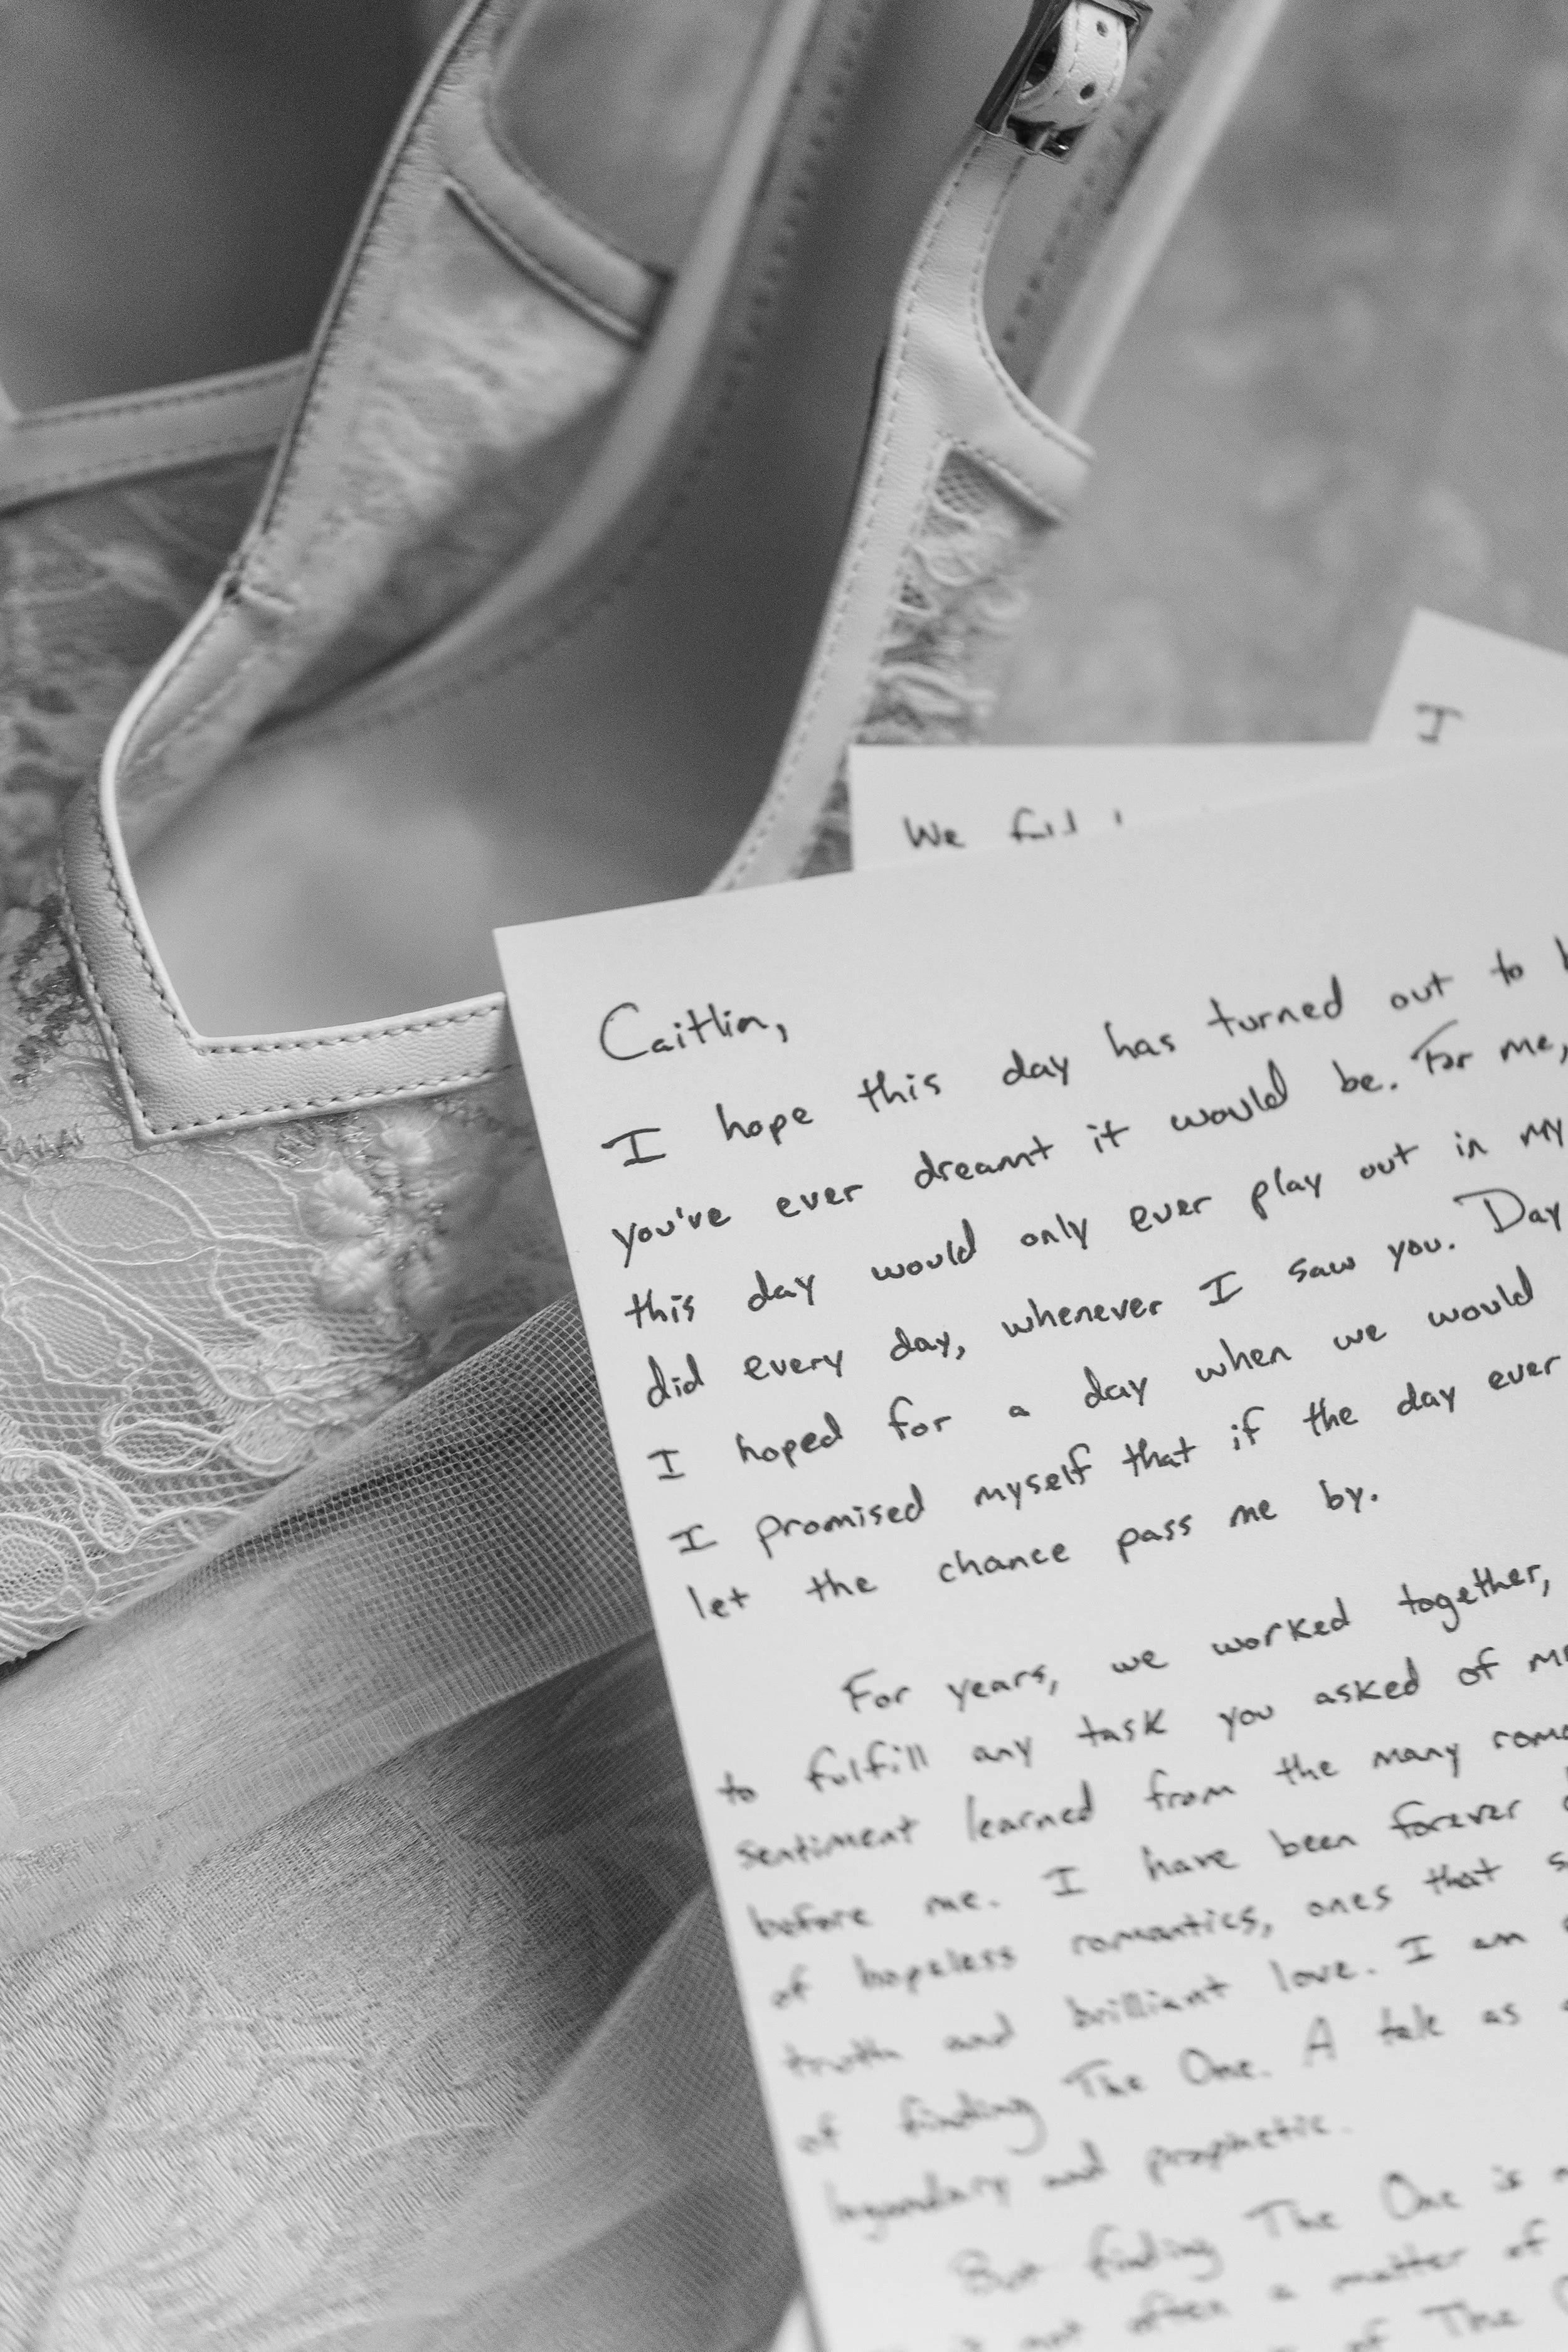 I
We
Caitlin,
I hope this day has turned out to
you've ever dreamt it would be. For me,
this day would only ever play out in my
did every day, whenever I saw you. Day
I hoped for a day when we would
I promised myself that if the day ever
let the chance pass me by.
For years, we worked together,
to fulfill any task you asked of
sentiment learned from the many
before me. I have been forever
of hopeless romantics, ones that
truth and brilliant love. I am
of finding The One. A tale as
legendary and prophetic.
But finding The One is
not often a matter of
of The